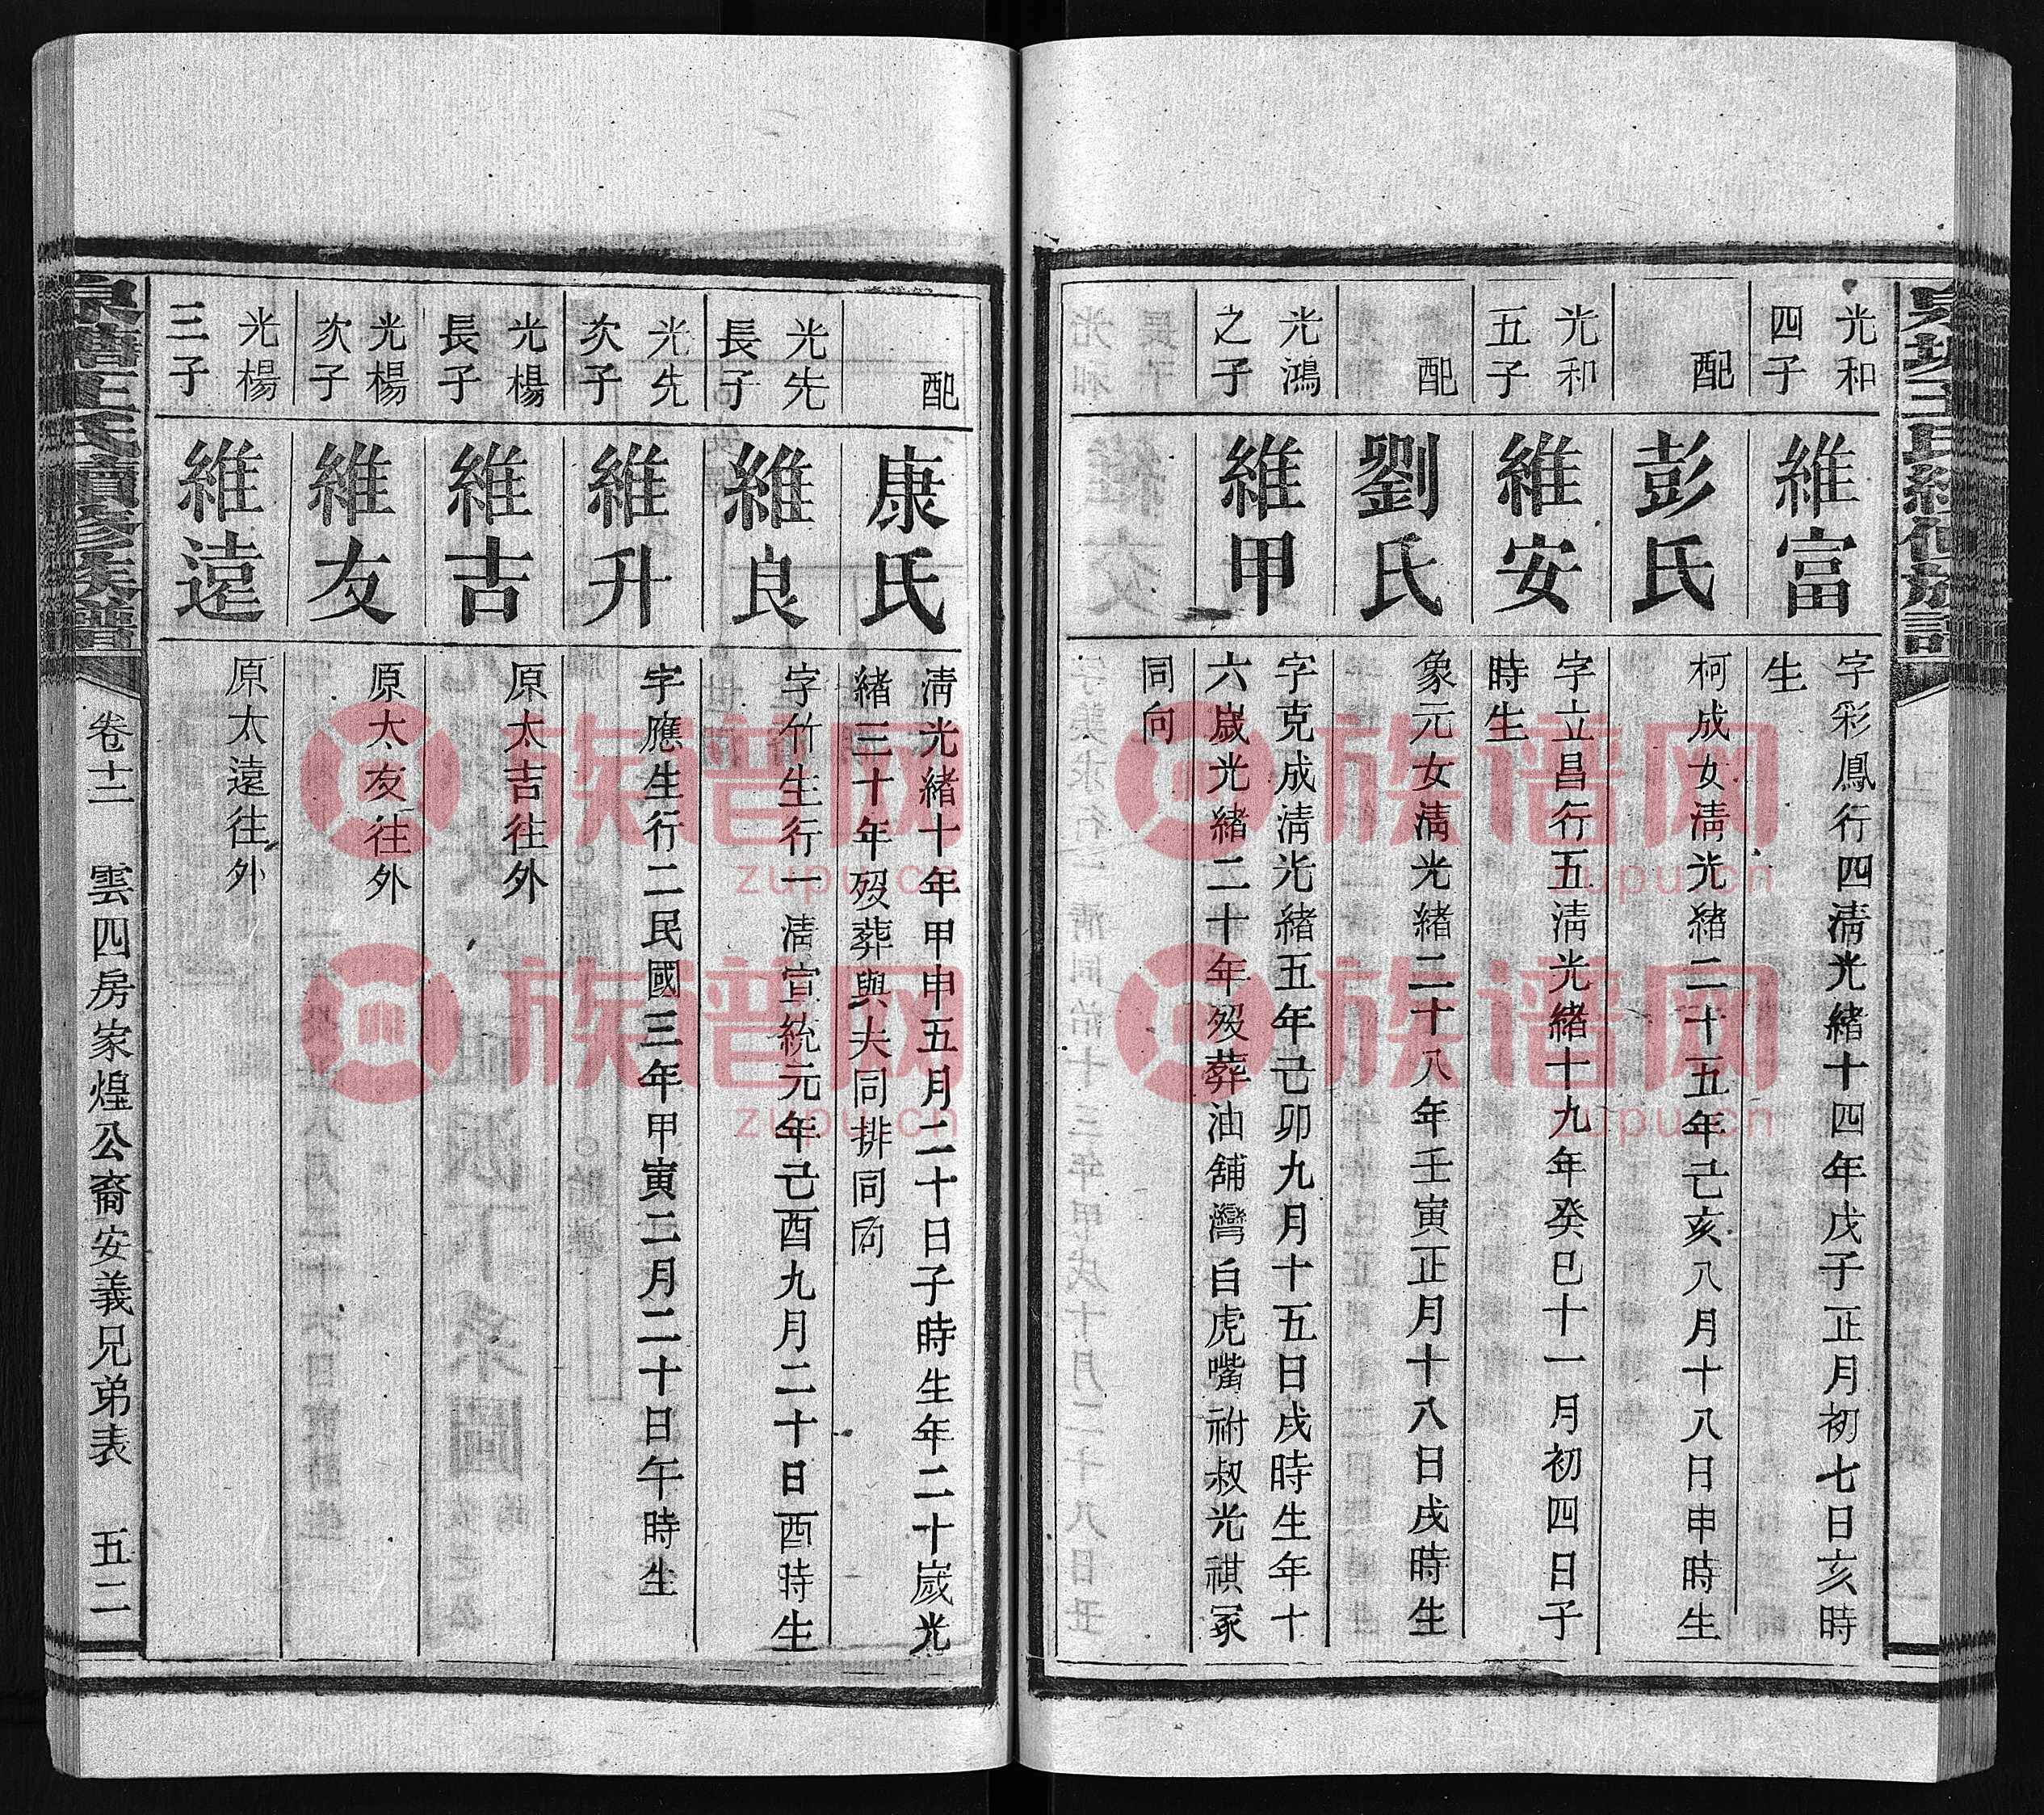 光和
四子
維富
字彩鳳行四清光緒十四年戊子正月初七日亥時
生
配
彭氏
柯成女清光緒二十五年己亥八月十八日申時生
光和
五子
維安
字立昌行五清光緒十九年癸巳十一月初四日子
時生
配
劉氏
象元女清光緒二十八年壬寅正月十八日戌時生
光鴻
之子
維甲
字克成清光緒五年己卯九月十五日戌時生年十
六歲光緒二十年歿葬油舖灣白虎嘴祔叔光祺冢
同向
配
康氏
清光緒十年甲申五月二十日子時生年二十歲光
緒三十年歿葬與夫同排同向
光先
長子
維良
字竹生行一清宣統元年己酉九月二十日酉時生
光先
次子
維升
字應生行二民國三年甲寅二月二十日午時生
光楊
長子
維吉
原太吉往外
光楊
次子
維友
原太友往外
光楊
三子
維遠
原太遠往外
王氏續修族譜
卷十二 雲四房家煌公裔安義兄弟表 五二
族谱网
zupu.cn
族谱网
zupu.cn
族谱网
zupu.cn
族谱网
zupu.cn